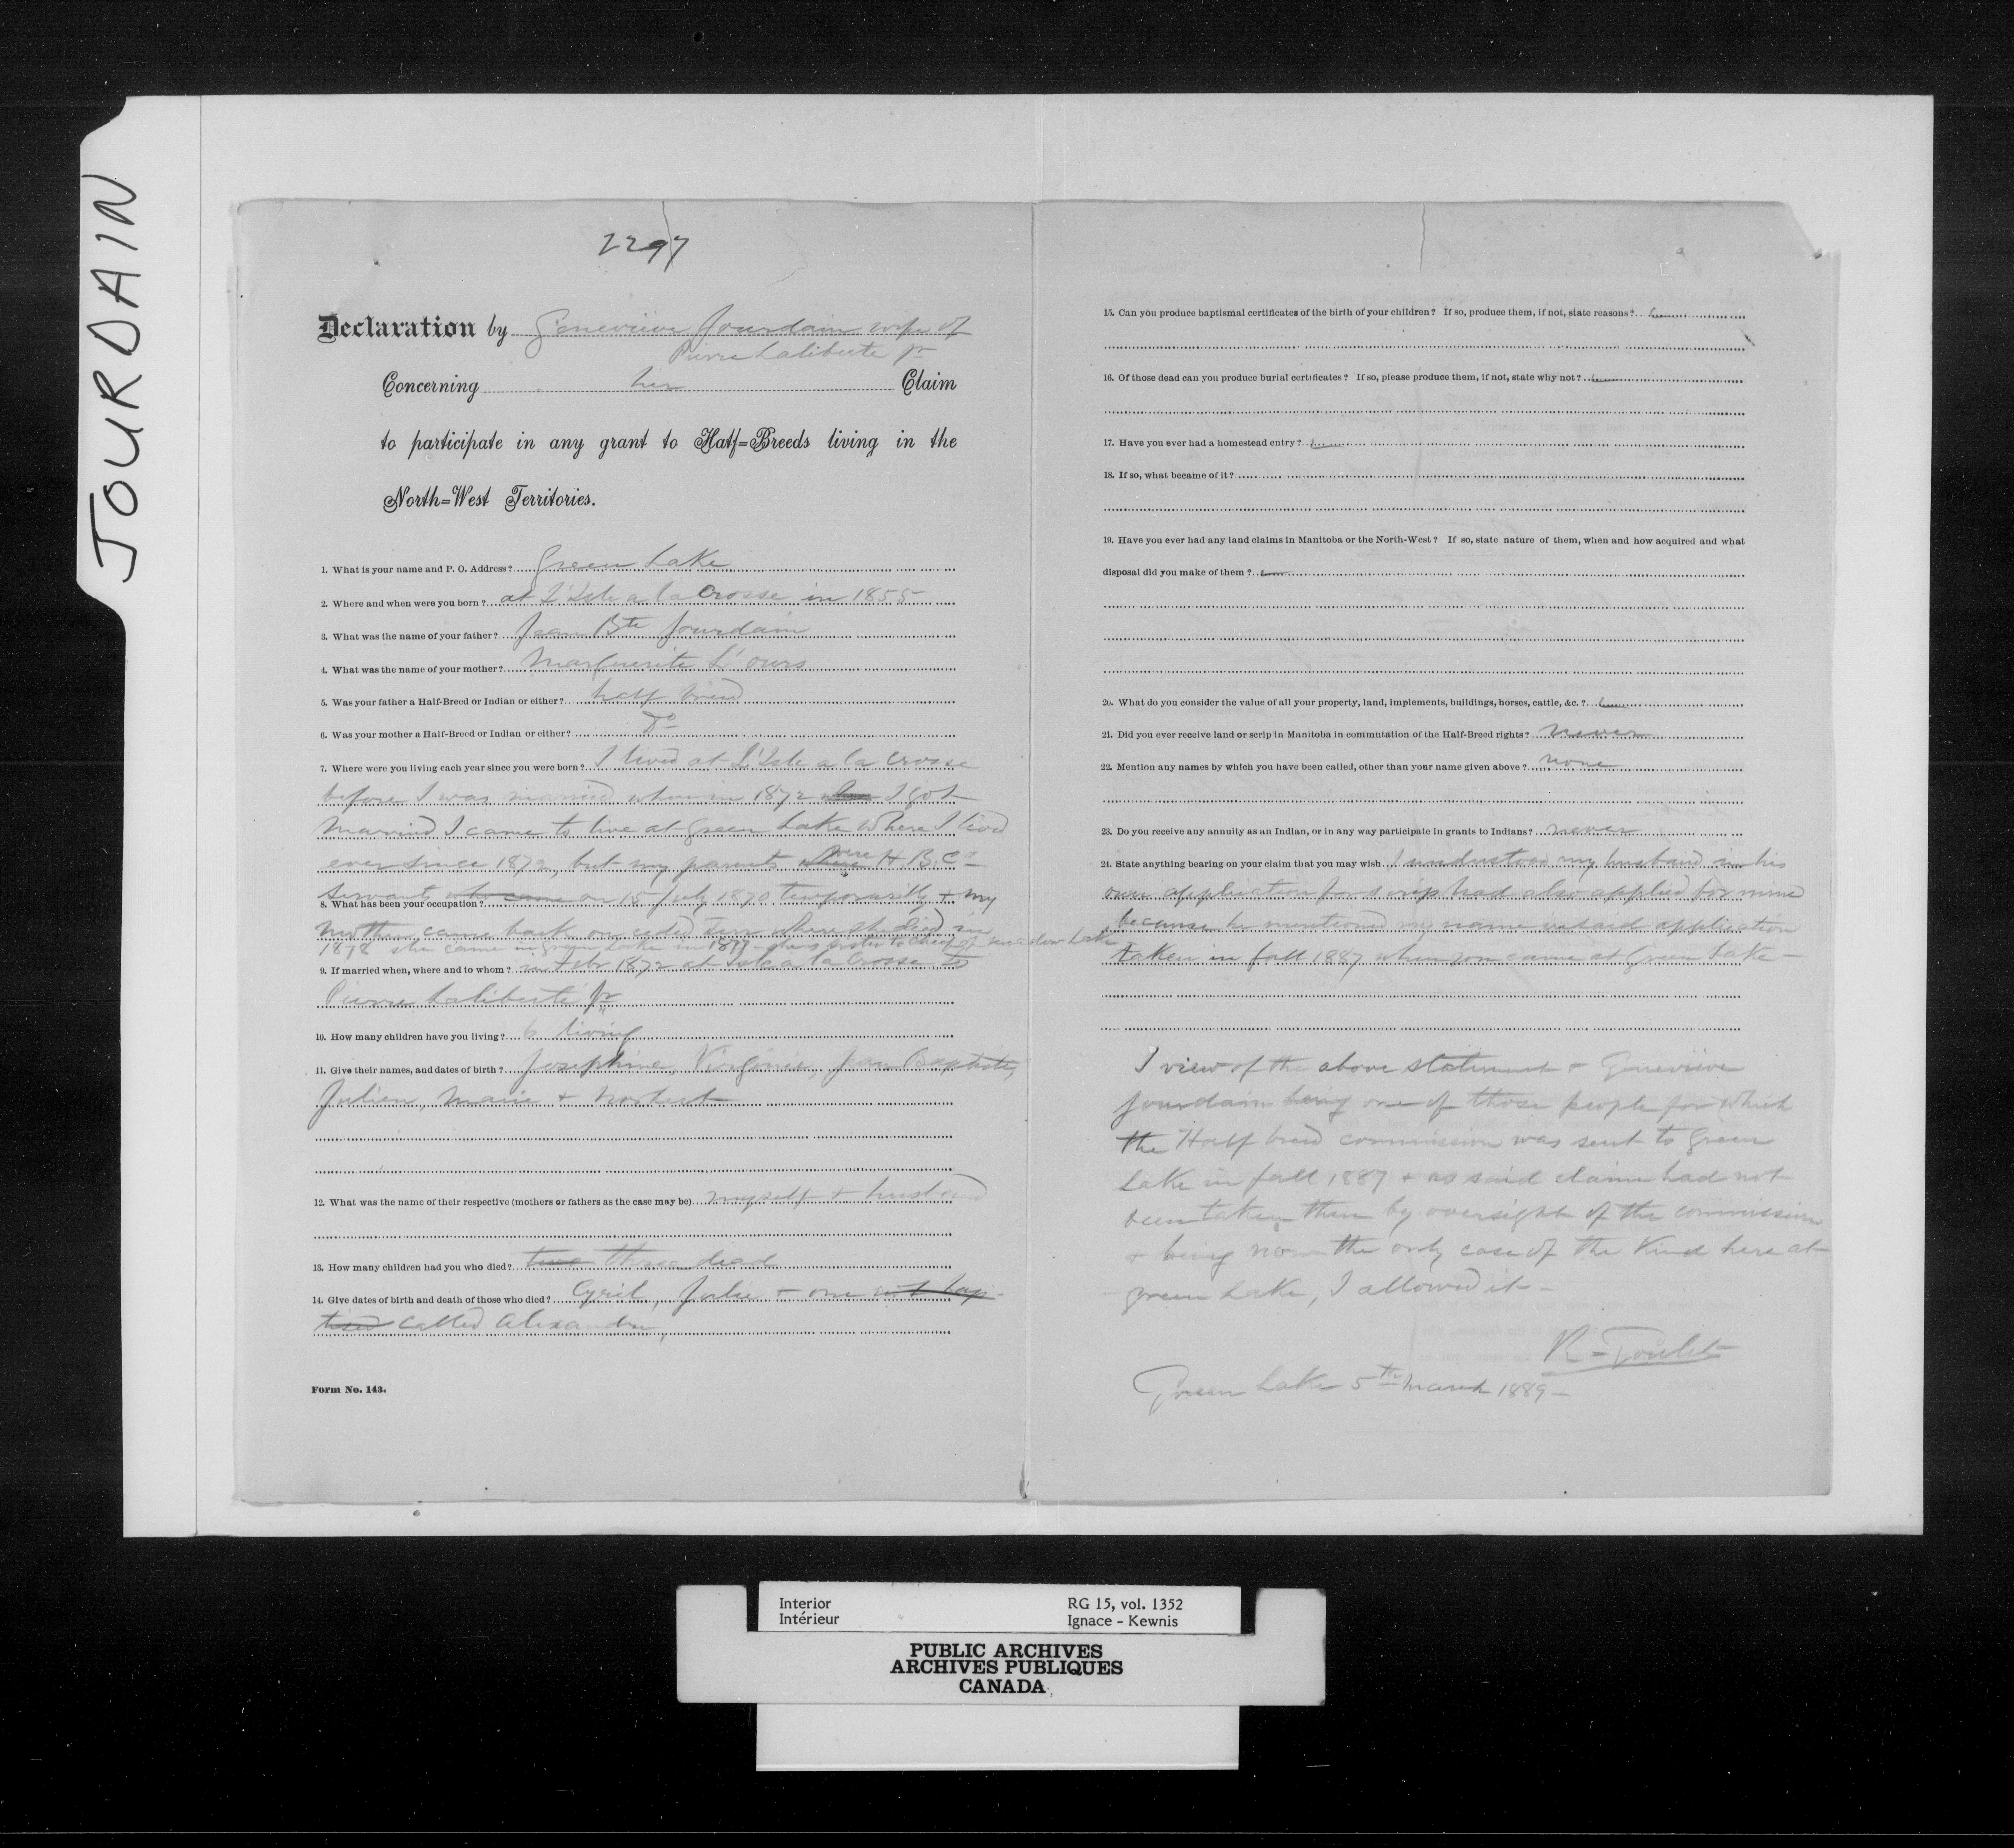 JOURDAIN
2297
Declaration by Genevieve Jourdain wife of
Pierre Laliberte jr
Concerning her Claim
to participate in any grant to Half=Breeds living in the
North=West Territories.
1. What is your name and P. O. Address? Green Lake
2. Where and when were you born? at L'Isle a la Crosse in 1855
3. What was the name of your father? Jean Bte Jourdain
4. What was the name of your mother? Marguerite L'ours
5. Was your father a Half-Breed or Indian or either? half breed
6. Was your mother a Half-Breed or Indian or either? Do
7. Where were you living each year since you were born? I lived at L'Isle a la Crosse
before I was married when in 1872 I got
married I came to live at Green Lake where I lived
ever since 1872, but my parents were H. B. Co
servants who came on 15 July 1870 temporarily & my
8. What has been your occupation?
mother came back on ceded Terr where she died in
1878 she came in Green Lake in 1877 - she is sister to chief of Meadow Lake
9. If married when, where and to whom? in Febr 1872 at Isle a la Crosse to
Pierre Laliberté jr
10. How many children have you living? 6 living
11. Give their names, and dates of birth? Josephine, Virginie, Jean Baptiste,
Julien, Marie & Norbert
12. What was the name of their respective (mothers or fathers as the case may be) myself & husband
13. How many children had you who died? two three dead
14. Give dates of birth and death of those who died? Cyril, Julie & one not bap-
tised called Alexandre,
Form No. 143.
15. Can you produce baptismal certificates of the birth of your children? If so, produce them, if not, state reasons?
16. Of those dead can you produce burial certificates? If so, please produce them, if not, state why not?
17. Have you ever had a homestead entry?
18. If so, what became of it?
19. Have you ever had any land claims in Manitoba or the North-West? If so, state nature of them, when and how acquired and what
disposal did you make of them?
20. What do you consider the value of all your property, land, implements, buildings, horses, cattle, &c.?
21. Did you ever receive land or scrip in Manitoba in commutation of the Half-Breed rights? never
22. Mention any names by which you have been called, other than your name given above? none
23. Do you receive any annuity as an Indian, or in any way participate in grants to Indians? never
24. State anything bearing on your claim that you may wish I understood my husband in his
own application for scrip had also applied for mine
because he mentioned my name in said application
taken in fall 1887 when you came at Green Lake -
I view of the above statement & Genevieve
Jourdain being one of those people for which
the Half breed commission was sent to Green
Lake in fall 1887 & as said claim had not
been taken then by oversight of the commission
& being now the only case of the kind here at
Green Lake, I allowed it -
R - Goulet
Green Lake 5th March 1889 -
Interior
Intérieur
RG 15, vol. 1352
Ignace - Kewnis
PUBLIC ARCHIVES
ARCHIVES PUBLIQUES
CANADA